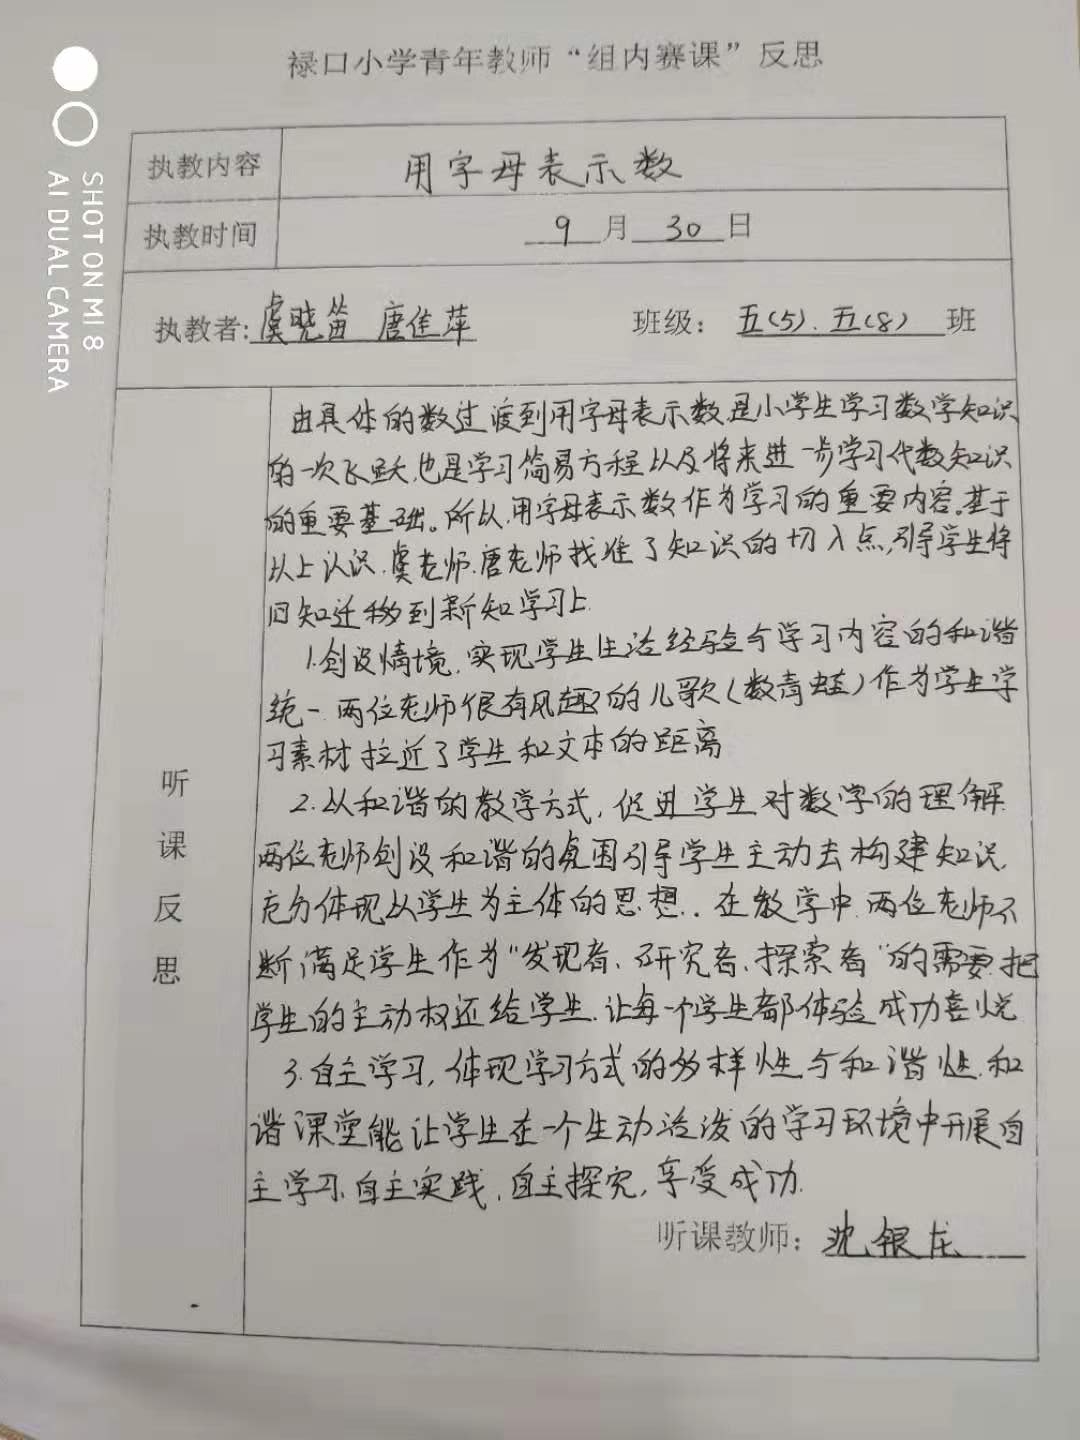 禄口小学青年教师“组内赛课”反思
执教内容 用字母表示数
执教时间 9月30日
执教者:虞晓笛 唐佳萍 班级: 五(5)、五(8) 班
听课反思
由具体的数过渡到用字母表示数是小学生学习数学知识
的一次飞跃,也是学习简易方程以及将来进一步学习代数知识
的重要基础。所以,用字母表示数作为学习的重要内容。基于
以上认识,虞老师、唐老师找准了知识的切入点,引导学生将
旧知迁移到新知学习上.
1.创设情境,实现学生生活经验与学习内容的和谐
统一.两位老师很有风趣的儿歌(数青蛙)作为学生学
习素材拉近了学生和文本的距离
2.以和谐的教学方式,促进学生对数学的理解.
两位老师创设和谐的氛围引导学生主动去构建知识,
充分体现以学生为主体的思想..在教学中,两位老师不
断满足学生作为“发现者、研究者、探索者”的需要.把
学生的主动权还给学生.让每一个学生都体验成功喜悦
3.自主学习,体现学习方式的多样性与和谐性.和
谐课堂能让学生在一个生动活泼的学习环境中开展自
主学习、自主实践,自主探究,享受成功.
听课教师:沈银龙
SHOT ON MI 8
AI DUAL CAMERA